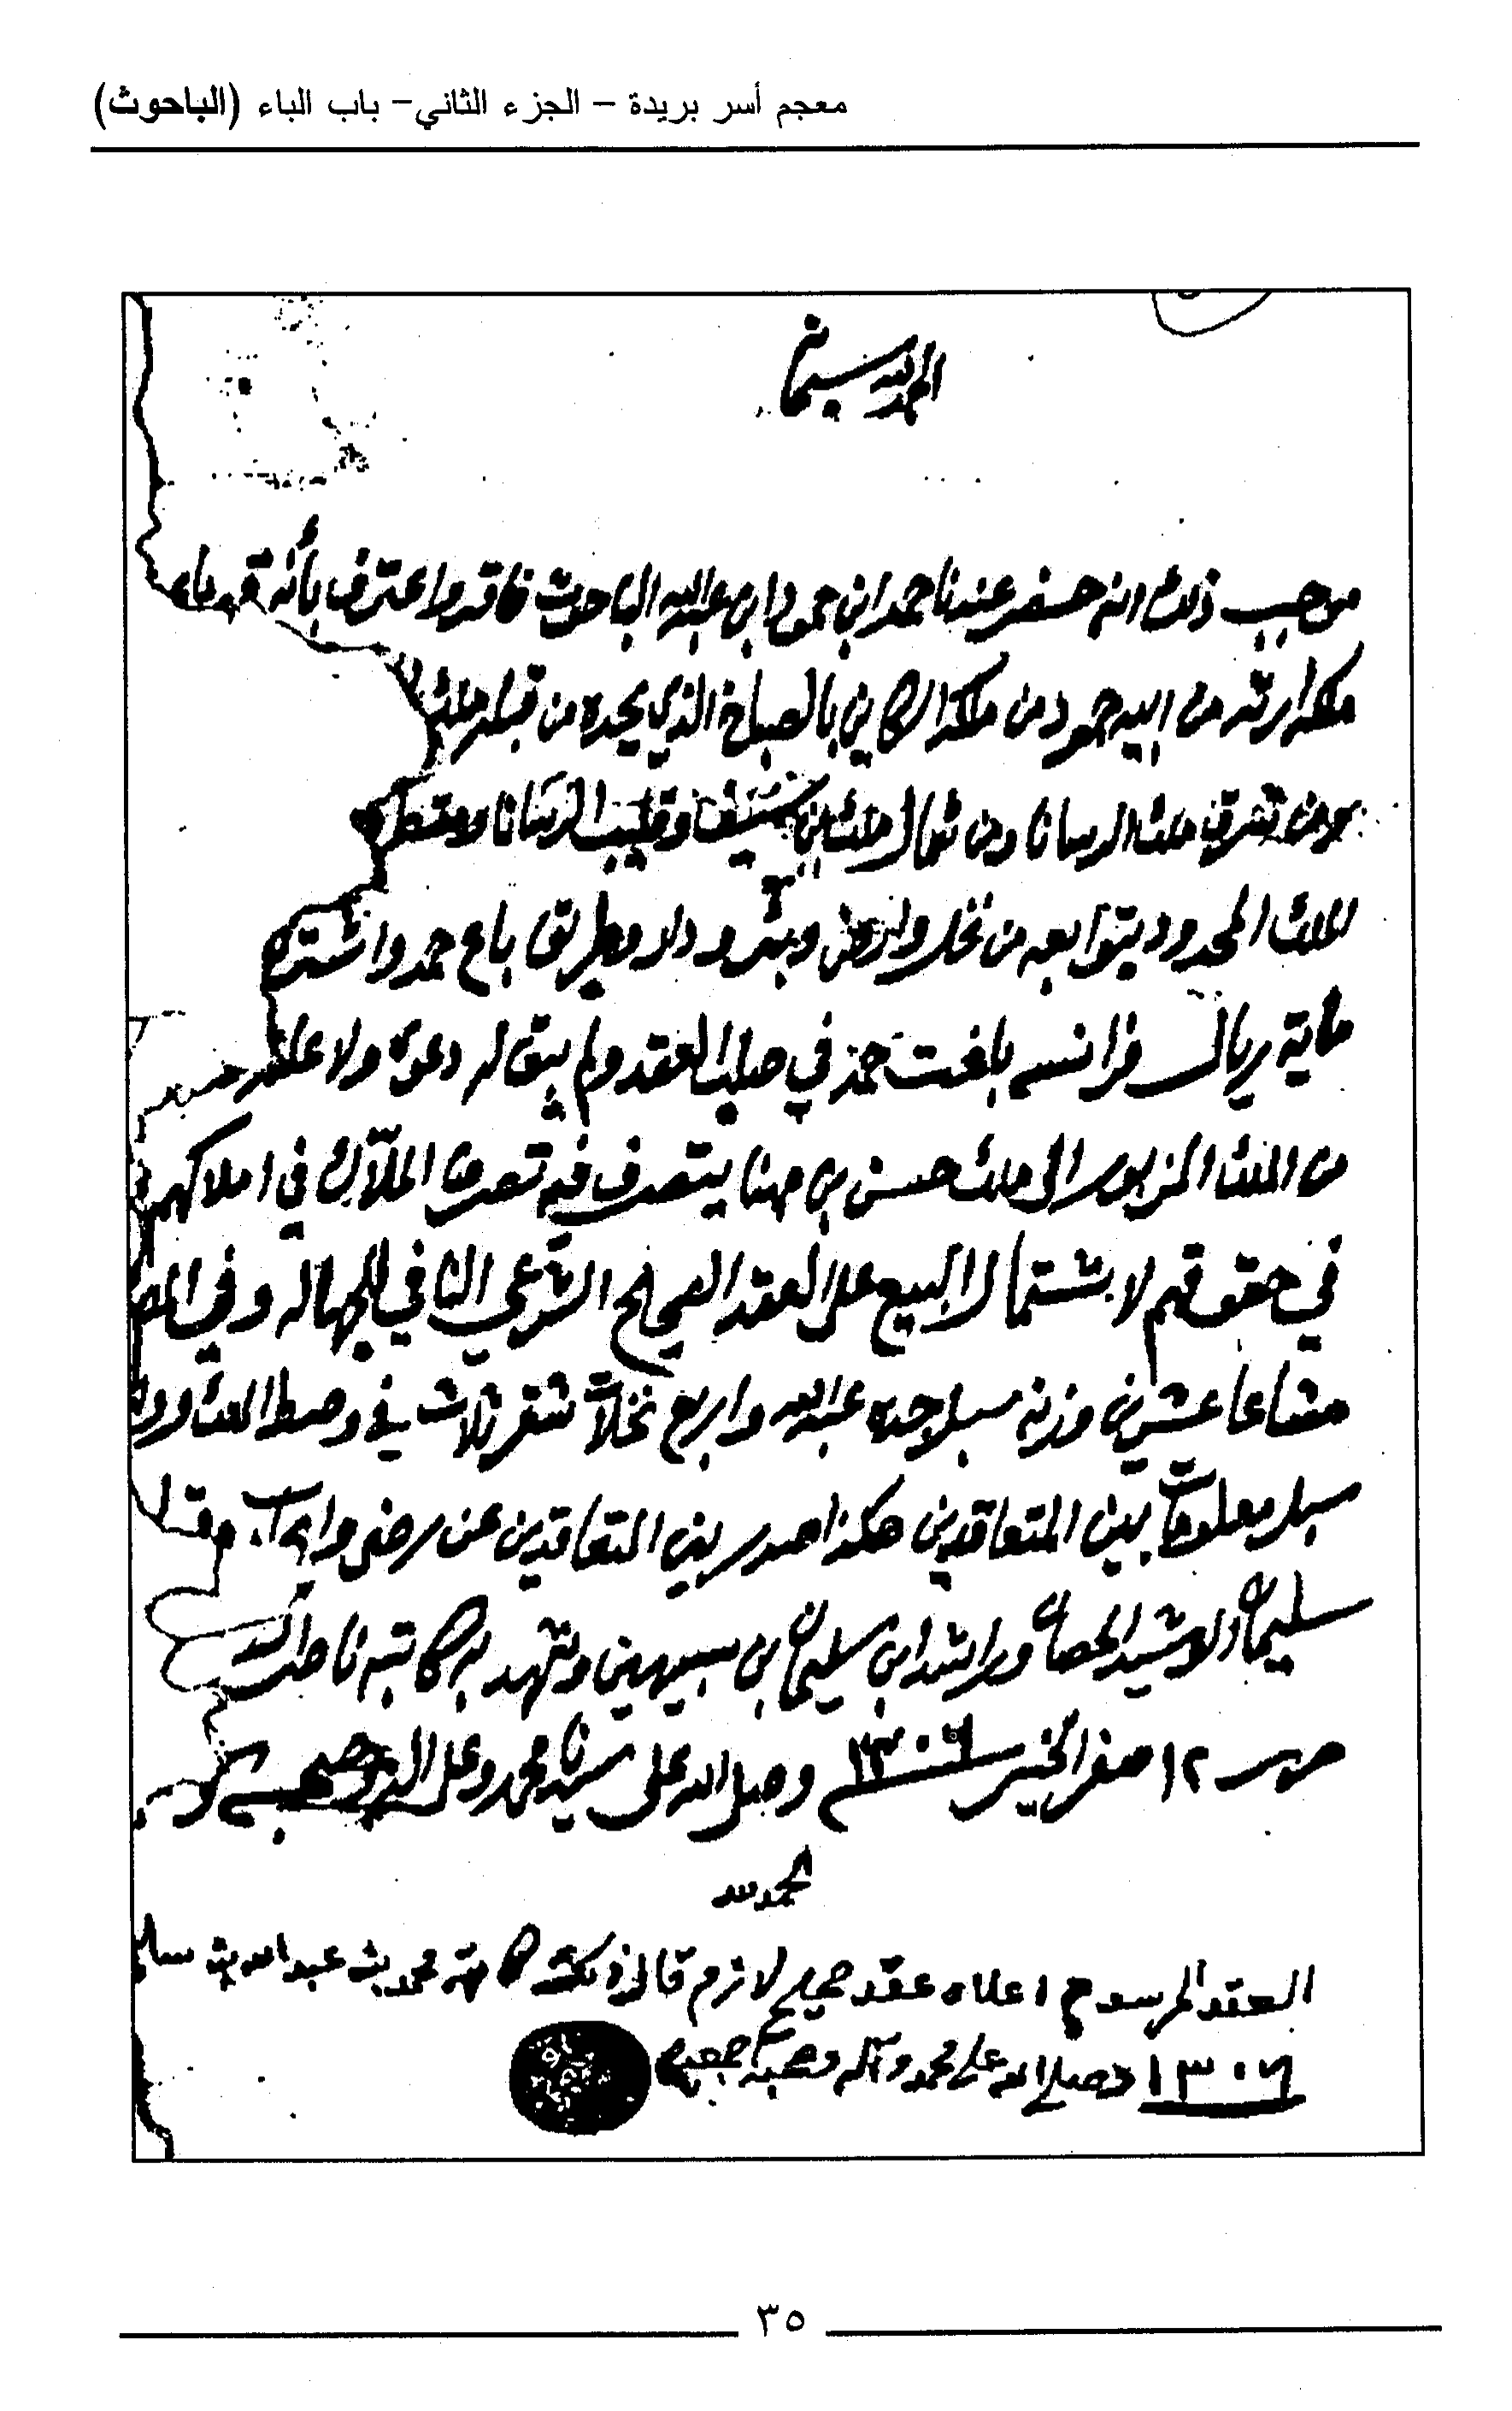 معجم أسر بريدة – الجزء الثاني – باب الباء (الباحوث)
الحمد لله سبحانه
موجب ذلك انه حضر عندنا حمد ابن حمود ابن عبدالله الباحوث فاقر واعترف بأنه قد باع
ملكه ارثه من ابيه حمود من ملكه الكاين بالصباخ الذي يحده من قبله ملك
ومن شرق ملك الرسانا ومن شمال ملك وقليب الرسانا
الملك المحدود بتوابعه من نخل وارض وبير ودار وطريق باع حمد واشترى
ماية ريال فرانسه بلغت حمد في صلب العقد ولم يبق له دعوى ولا علقه
من الملك المزبور الى ملك حسن بن مهنا يتصرف فيه تصرف الملاك في املاكهم
في حقوقهم لاشتمال البيع على العقد الصحيح الشرعي النافي للجهاله وفي
مشاعا عشرين وزنه سبل جده عبدالله واربع نخلات شقر ثلاث في وسط الملك
سبل معلومات بين المتعاقدين هكذا صدر بين المتعاقدين عن رضى
سليمان الرشيد وراشد ابن سليمان بن سبيهين وشهد به كاتبه ناصر
حرر ١٢ صفر الخير ١٣٠٦ وصلى الله على سيدنا محمد وعلى اله وصحبه وسلم
الحمد لله
العقد المرسوم اعلاه عقد صحيح لازم قال ذلك كاتبه محمد بن عبدالله بن سليم
١٣٠٦ وصلى الله على محمد وآله وصحبه اجمعين
٣٥